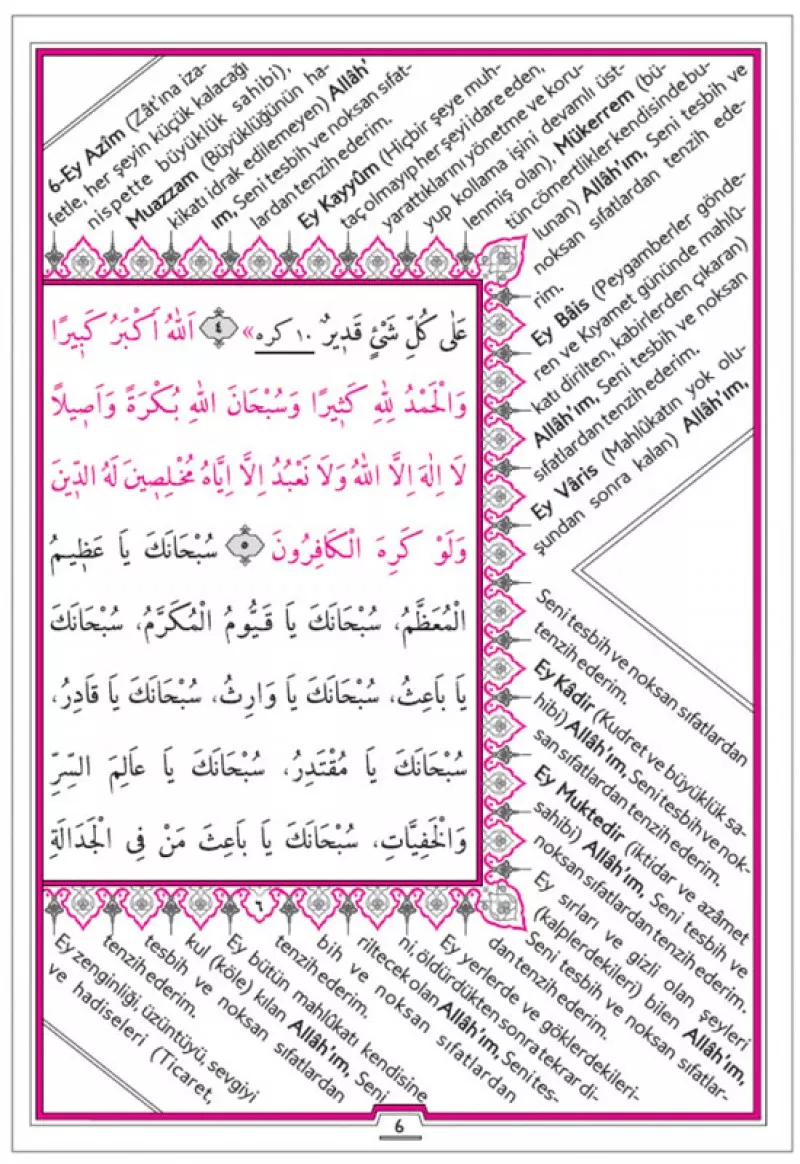 6-Ey Azîm (Zât'ına iza-
fetle, her şeyin küçük kalacağı
nispette büyüklük sahibi),
Muazzam (Büyüklüğünün ha-
kikatı idrak edilemeyen) Allâh'
ım, Seni tesbih ve noksan sıfat-
lardan tenzih ederim.
Ey Kayyûm (Hiçbir şeye muh-
taç olmayıp her şeyi idare eden,
yarattıklarını yönetme ve koru-
yup kollama işini devamlı üst-
lenmiş olan), Mükerrem (bü-
tün cömertlikler kendisinde bu-
lunan) Allâh'ım, Seni tesbih ve
noksan sıfatlardan tenzih ede-
rim.
Ey Bâis (Peygamberler gönde-
ren ve Kıyamet gününde mahlû-
katı dirilten, kabirlerden çıkaran)
Allâh'ım, Seni tesbih ve noksan
sıfatlardan tenzih ederim.
Ey Vâris (Mahlûkatın yok olu-
şundan sonra kalan) Allâh'ım,
Seni tesbih ve noksan sıfatlardan
tenzih ederim.
Ey Kâdir (Kudret ve büyüklük sa-
hibi) Allâh'ım, Seni tesbih ve nok-
san sıfatlardan tenzih ederim.
Ey Muktedir (iktidar ve azâmet
sahibi) Allâh'ım, Seni tesbih ve
noksan sıfatlardan tenzih ederim.
Ey sırları ve gizli olan şeyleri
(kalplerdekileri) bilen Allâh'ım,
Seni tesbih ve noksan sıfatlar-
dan tenzih ederim.
Ey yerlerde ve göklerdekileri-
ni, öldürdükten sonra tekrar di-
riltecek olan Allâh'ım, Seni tes-
bih ve noksan sıfatlardan
tenzih ederim.
Ey bütün mahlûkatı kendisine
kul (köle) kılan Allâh'ım, Seni
tesbih ve noksan sıfatlardan
tenzih ederim.
Ey zenginliği, üzüntüyü, sevgiyi
ve hadiseleri (Ticaret,
عَلٰى كُلِّ شَيْئٍ قَدٖيرٌ ١٠ كره» ﴿٤﴾ اَللهُ اَكْبَرُ كَبٖيرًا
وَالْحَمْدُ لِلهِ كَثٖيرًا وَسُبْحَانَ اللهِ بُكْرَةً وَاَصٖيلاً
لَا اِلٰهَ اِلَّا اللهُ وَلَا نَعْبُدُ اِلَّا اِيَّاهُ مُخْلِصٖينَ لَهُ الدّٖينَ
وَلَوْ كَرِهَ الْكَافِرُونَ ﴿٥﴾ سُبْحَانَكَ يَا عَظٖيمُ
الْمُعَظَّمُ، سُبْحَانَكَ يَا قَيُّومُ الْمُكَرَّمُ، سُبْحَانَكَ
يَا بَاعِثُ، سُبْحَانَكَ يَا وَارِثُ، سُبْحَانَكَ يَا قَادِرُ،
سُبْحَانَكَ يَا مُقْتَدِرُ، سُبْحَانَكَ يَا عَالِمَ السِّرِّ
وَالْخَفِيَّاتِ، سُبْحَانَكَ يَا بَاعِثَ مَنْ فِى الْجَدَالَةِ
٦
6